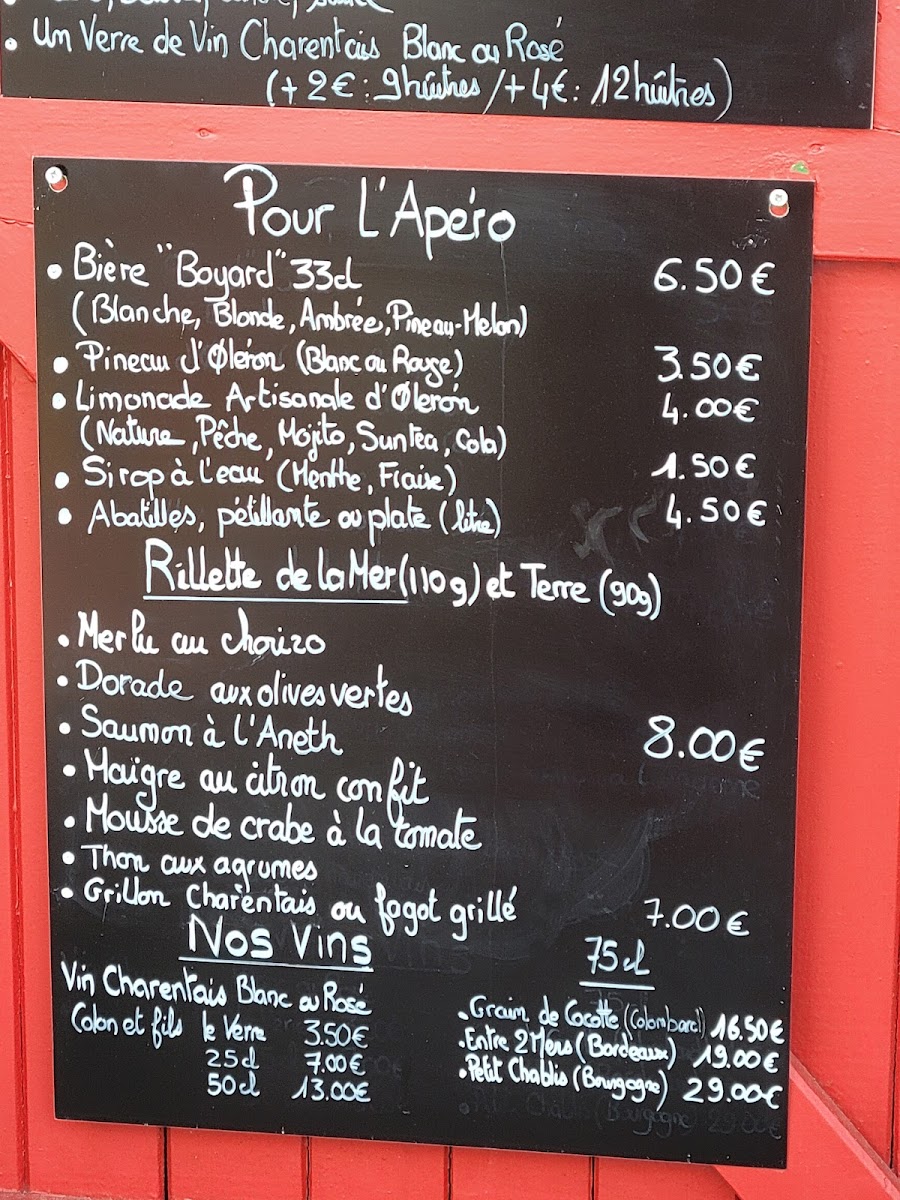 • Un Verre de Vin Charentais Blanc ou Rosé
(+2€ : 9 huîtres / +4€ : 12 huîtres)
Pour L'Apéro
• Bière "Boyard" 33cl 6.50€
(Blanche, Blonde, Ambrée, Pineau-Melon)
• Pineau d'Øléron (Blanc ou Rouge) 3.50€
• Limonade Artisanale d'Øleron 4.00€
(Nature, Pêche, Mojito, Suntea, Cola)
• Sirop à l'eau (Menthe, Fraise) 1.50€
• Abatilles, pétillante ou plate (litre) 4.50€
Rillette de la Mer (110g) et Terre (90g)
• Merlu au chorizo
• Dorade aux olives vertes
• Saumon à l'Aneth 8.00€
• Maigre au citron confit
• Mousse de crabe à la tomate
• Thon aux agrumes
• Grillon Charentais ou fagot grillé 7.00€
Nos Vins
Vin Charentais Blanc ou Rosé
Colon et fils le Verre 3.50€
25cl 7.00€
50cl 13.00€
75cl
• Grain de Cocotte (Colombard) 16.50€
• Entre 2 Mers (Bordeaux) 19.00€
• Petit Chablis (Bourgogne) 29.00€